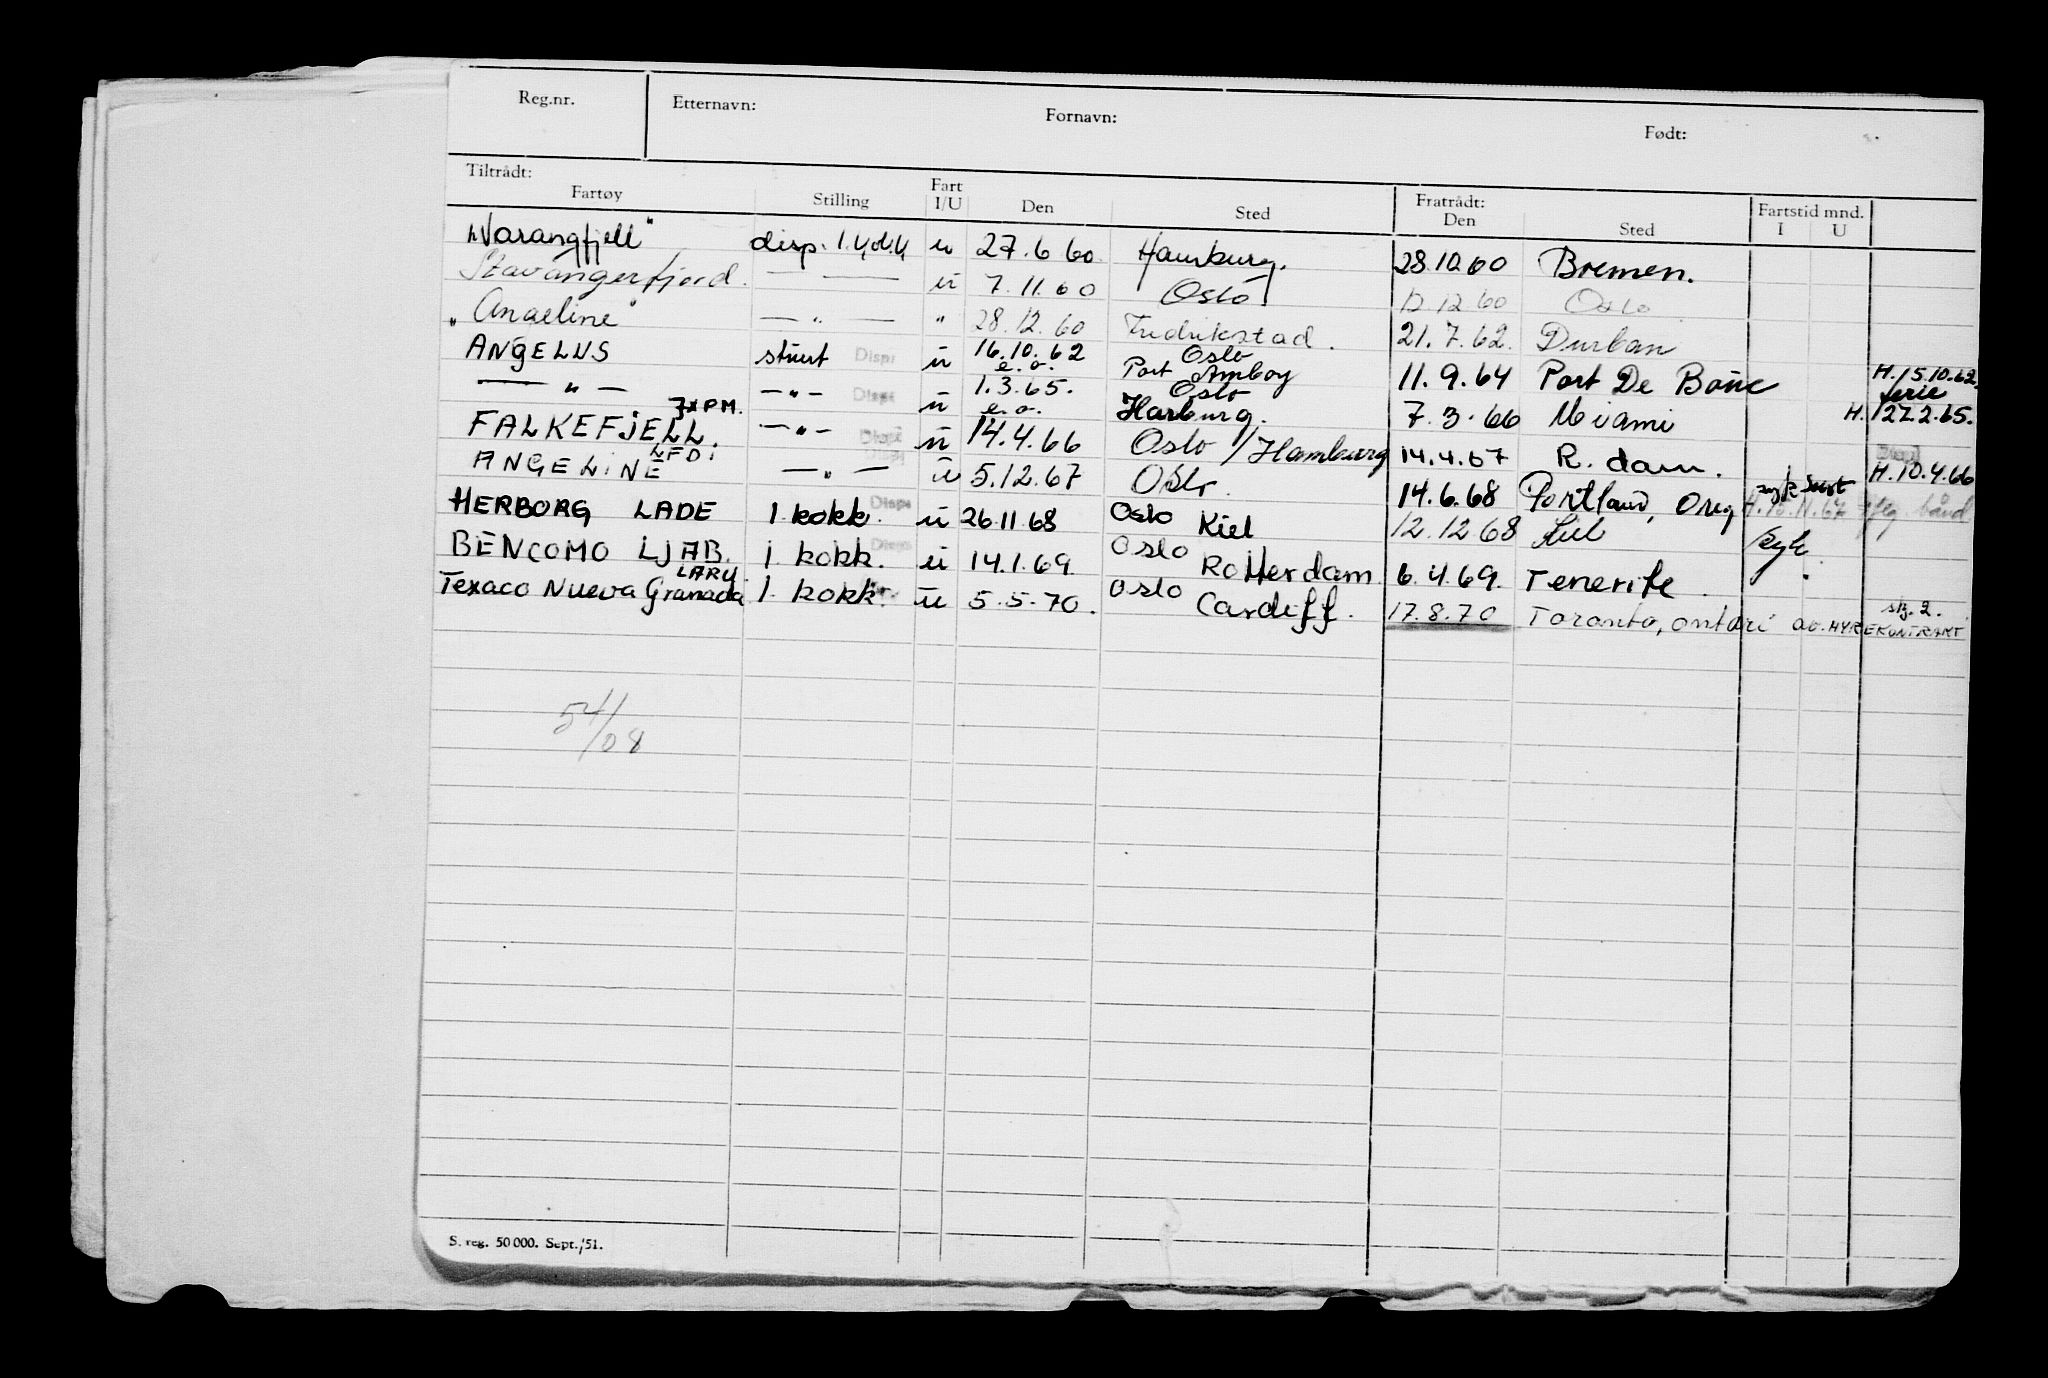 Reg.nr. Etternavn: Fornavn: Født:
Tiltrådt: Fratrådt: Fartstid mnd.
Fartøy Stilling Fart I/U Den Sted Den Sted I U
"Varangfjell" disp. u 27.6 60 Hamburg. 28.10.60 Bremen.
Stavangerfjord. — u 7.11.60 Oslo 12.12.60 Oslo
"Angeline" — " — " 28.12.60 Fredrikstad. 21.7.62. Durban
ANGELUS stuert Disp u 16.10.62 e.o. Oslo Port Amboy 11.9.64 Port De Bouc H. 15.10.62 ferie
— " — — " — Disp u 1.3.65. e.o. Oslo Harburg. 7.3.66 Miami H. 27.2.65.
FALKEFJELL. — " — Disp u 14.4.66 Oslo/Hamburg 14.4.67 R.dam. H. 10.4.66
ANGELINE LFDI — " — u 5.12.67 Oslo. 14.6.68 Portland, Oreg
HERBORG LADE 1. kokk. Disp u 26.11.68 Oslo Kiel 12.12.68 Kiel syk.
BENCOMO LJAB. 1. kokk. Disp u 14.1.69 Oslo Rotterdam 6.4.69. Tenerife.
Texaco Nueva Granada LARU. 1. kokk. u 5.5.70. Oslo Cardiff. 17.8.70 Toronto, ontari HYREKONTRAKT
54/08
S. reg. 50 000. Sept. '51.